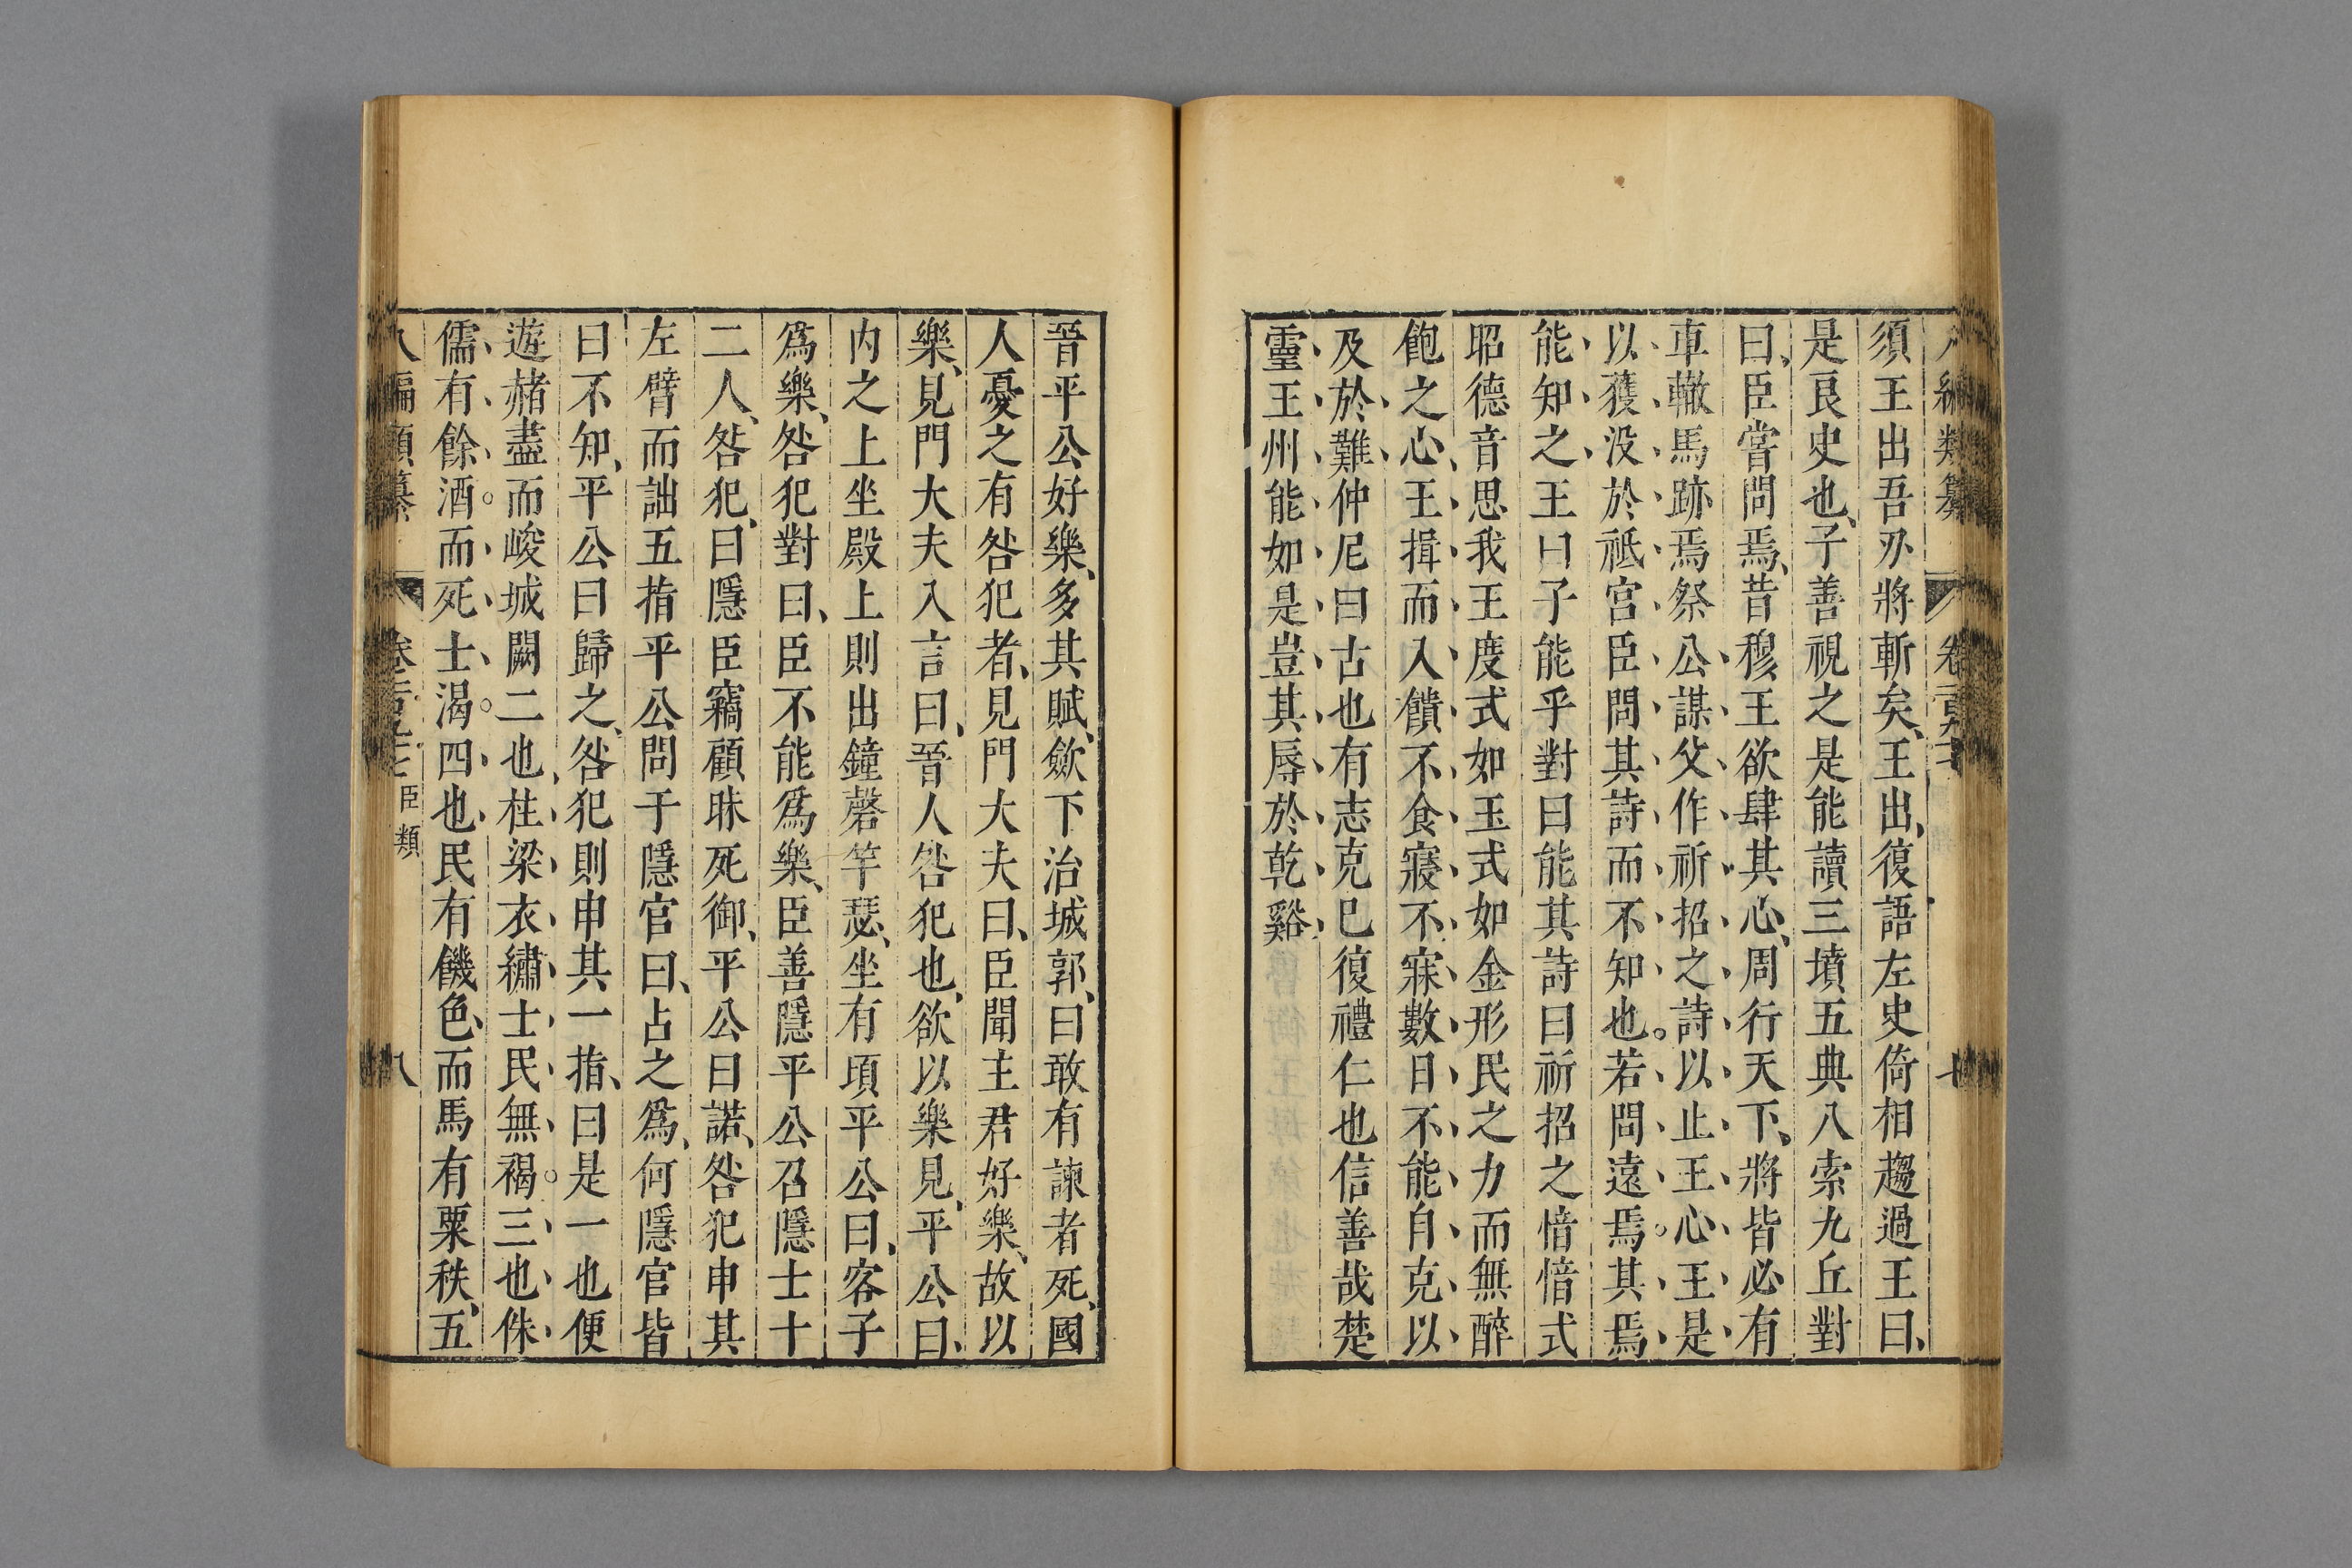 須王出吾刃將斬矣王出復語左史倚相趨過王曰
是良史也子善視之是能讀三墳五典八索九丘對
曰臣嘗問焉昔穆王欲肆其心周行天下將皆必有
車轍馬跡焉祭公謀父作祈招之詩以止王心王是
以獲没於祗宮臣問其詩而不知也若問遠焉其焉
能知之王曰子能乎對曰能其詩曰祈招之愔愔式
昭德音思我王度式如玉式如金形民之力而無醉
飽之心王揖而入饋不食寢不寐數日不能自克以
及於難仲尼曰古也有志克已復禮仁也信善哉楚
靈王州能如是豈其辱於乾谿
晉平公好樂多其賦歛下治城郭曰敢有諫者死國
人憂之有咎犯者見門大夫曰臣聞主君好樂故以
樂見門大夫入言曰晉人咎犯也欲以樂見平公曰
内之上坐殿上則出鐘磬竽瑟坐有頃平公曰客子
爲樂咎犯對曰臣不能爲樂臣善隱平公召隱士十
二人咎犯曰隱臣竊顧昧死御平公曰諾咎犯申其
左臂而詘五指平公問于隱官曰占之爲何隱官皆
曰不知平公曰歸之咎犯則申其一指曰是一也便
遊赭盡而峻城闕二也柱梁衣繡士民無褐三也侏
儒有餘酒而死士渴四也民有饑色而馬有粟秩五
八編類纂 臣類 八